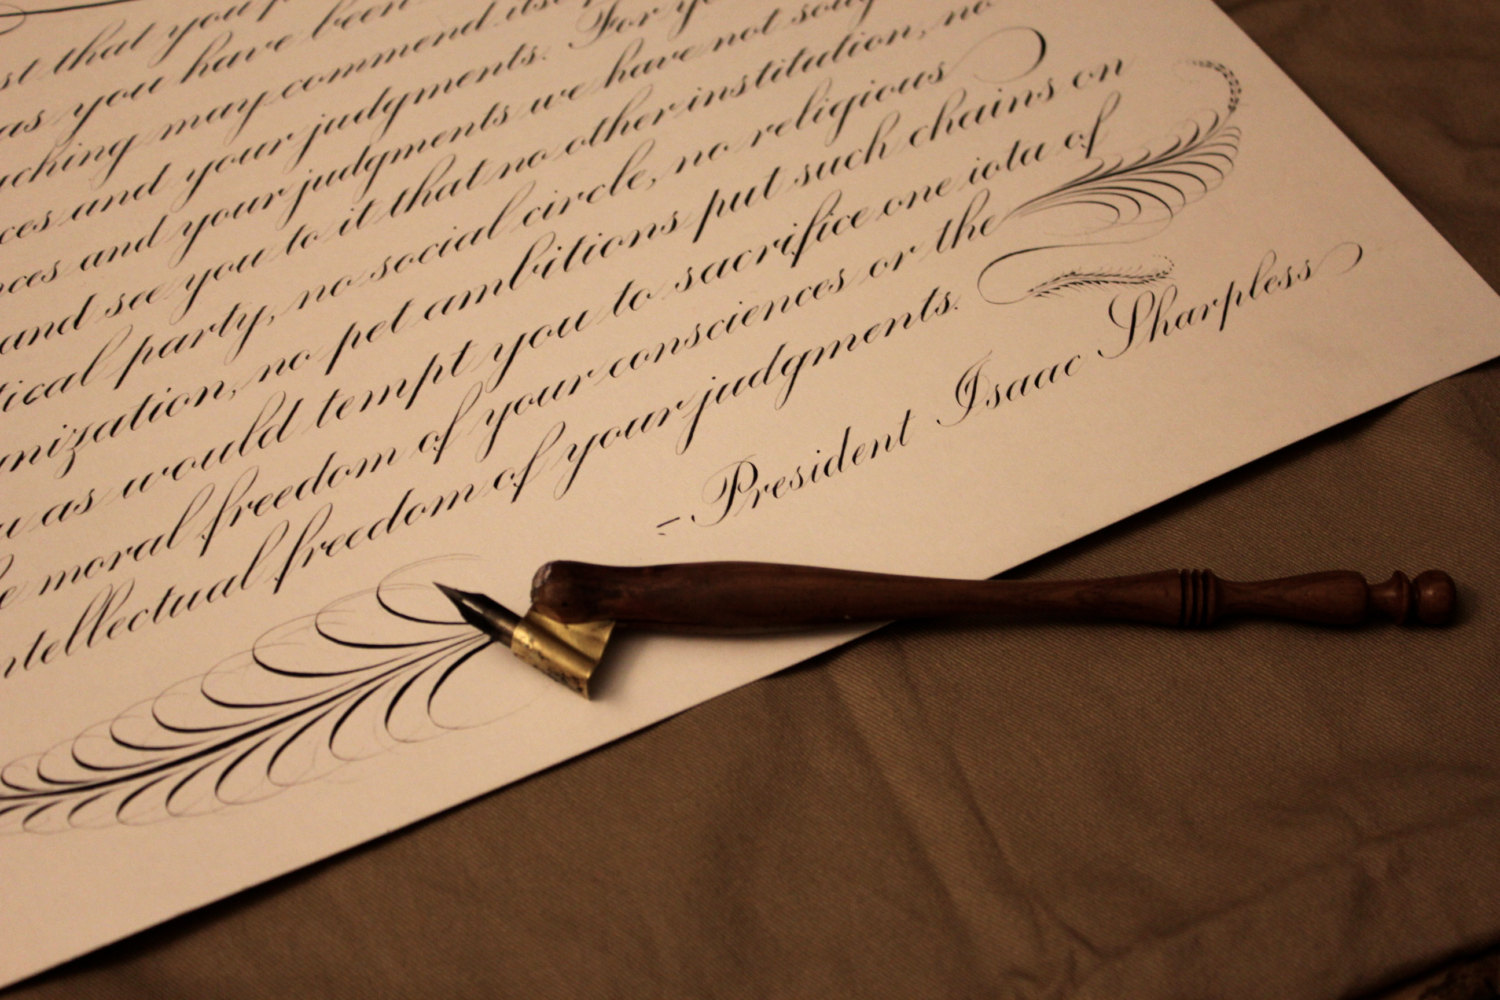 that you
as you have been
may commend its
and your judgments. For
and your judgments we have not
and see you to it that no other institution, no
tical party, no social circle, no religious
nization, no pet ambitions put such chains on
u as would tempt you to sacrifice one iota of
e moral freedom of your consciences or the
ntellectual freedom of your judgments.
-President Isaac Sharpless